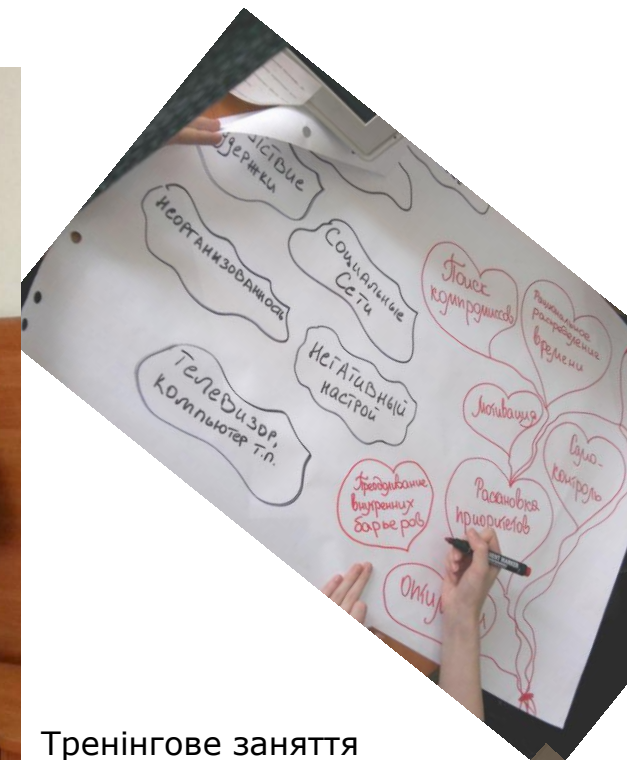 держки
неорганизованность
Социальные
Сети
Негативный
настрой
Телевизор,
компьютер т.п.
Поиск
компромиссов
Рациональное
распределение
времени
Мотивация
Само-
контроль
Преодоливание
внутренних
барьеров
Расановка
приоритетов
Тренінгове заняття